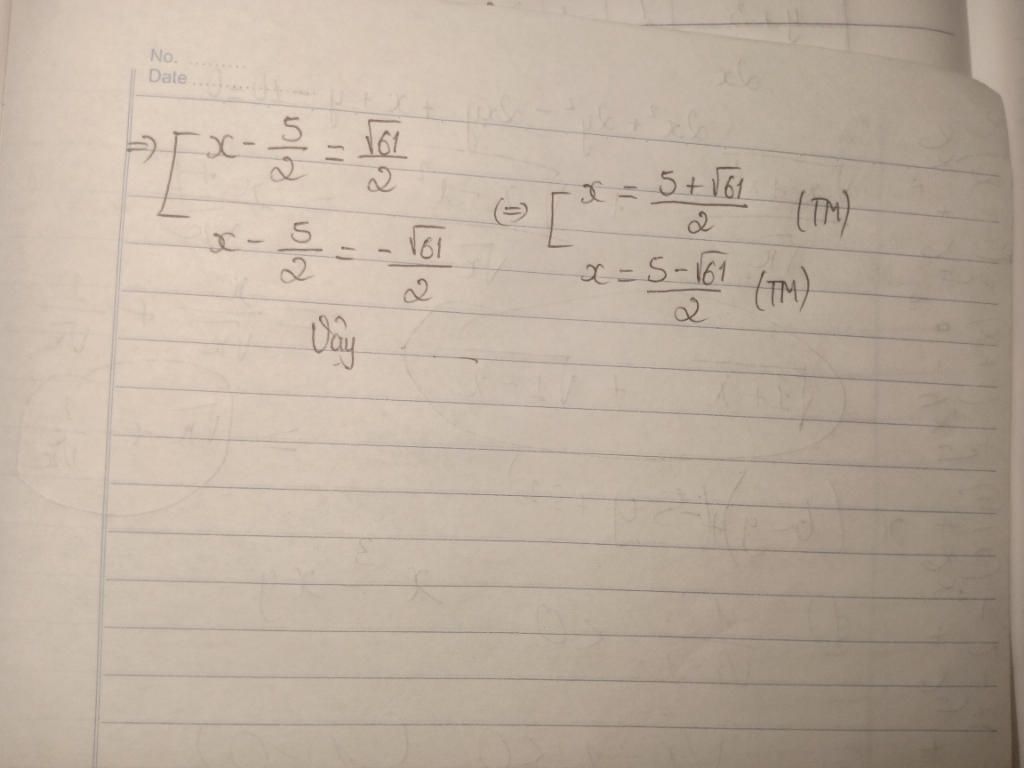 No. .........
Date ..................
=> [ x - 5/2 = √61/2
x - 5/2 = - √61/2
(=) [ x = 5+√61/2 (TM)
x = 5-√61/2 (TM)
Vậy